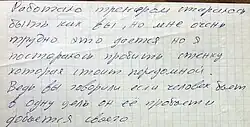 Работаю тренером стараюсь
быть как вы, но мне очень
трудно это дается но я
постараюсь пробить стенку
которая стоит передомной.
Ведь вы говорили если человек бьет
в одну цель он ее пробьет и
добьется своего